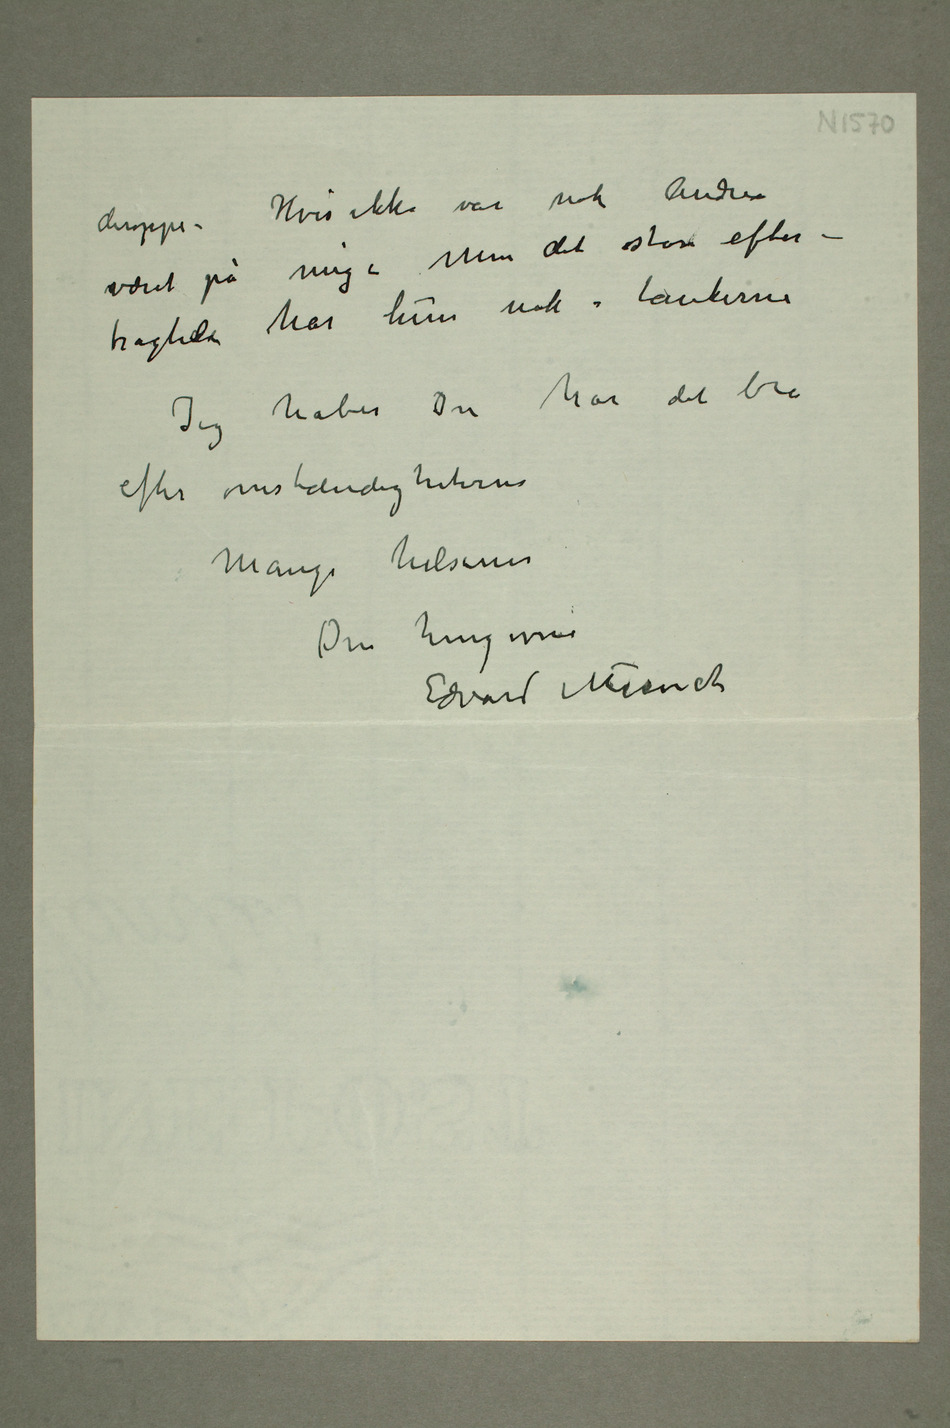 N1570
deroppe – Hvis ikke var nok Andrea
været på mig – Men det store efter –
tragtede har hun nok i tankerne
Jeg håber Du har det bra
efter omstændigheterne
Mange hilsener
Din hengivne
Edvard Munch